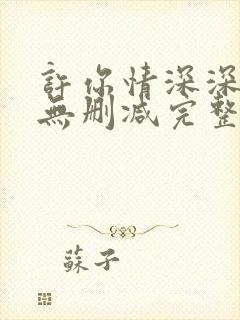 許你情深深
無刪減完整
蘇子